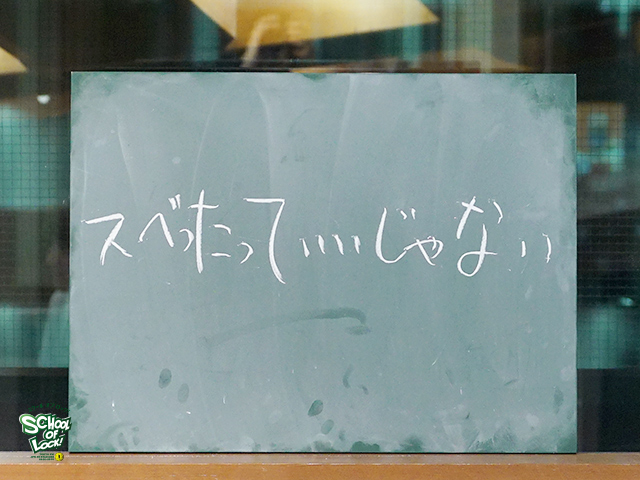 スベったっていいじゃない
SCHOOL
OF
LOCK!